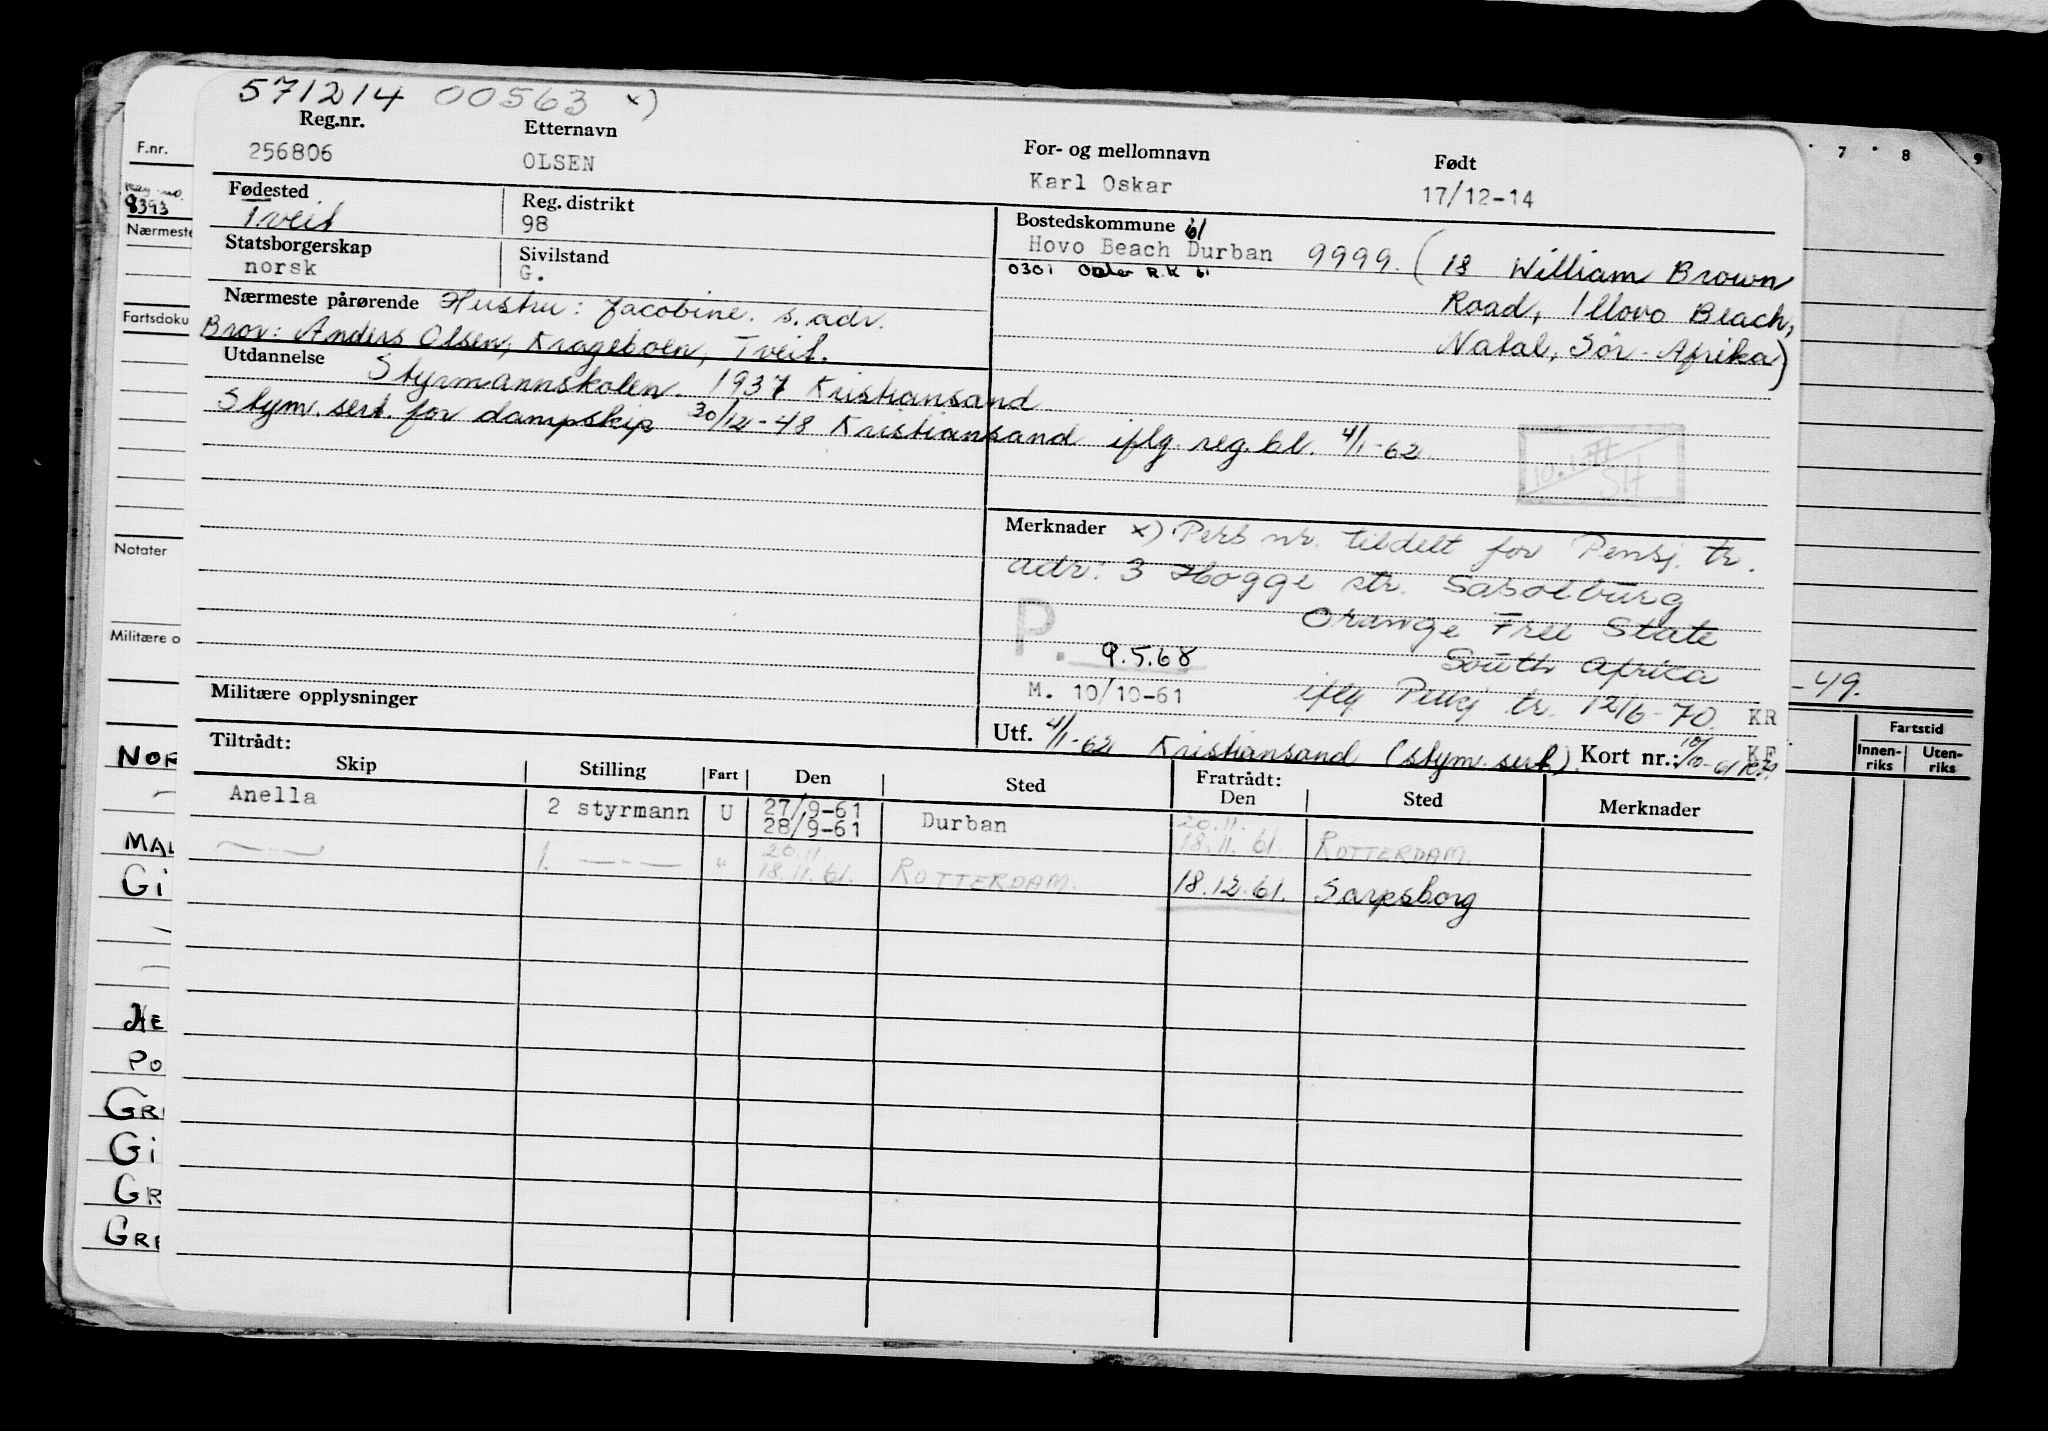 571214 00563 x)
Reg.nr. Etternavn For- og mellomnavn Født
256806 OLSEN Karl Oskar 17/12-14
Fødested Reg. distrikt Bostedskommune 61
Tveit 98 Hovo Beach Durban 9999. (18 William Brown
Statsborgerskap Sivilstand 0301 R.K 61 Road, Illovo Beach,
norsk G. Natal, Sør-Afrika)
Nærmeste pårørende Hustru: Jacobine. s. adr.
Bror: Anders Olsen, Krageboen, Tveit.
Utdannelse Styrmannskolen. 1937 Kristiansand
Stym. sert. for dampskip 30/12-48 Kristiansand iflg. reg. bl. 4/1-62.
Merknader x) Pers nr. tildelt for Pensj. tr.
adr: 3 Hogge str. Sasolburg
Orange Free State
P. 9.5.68 South Africa
M. 10/10-61 iflg Pensj tr. 12/6-70. KR
Militære opplysninger
Utf. 4/1-62 Kristiansand (stym. sert.) Kort nr.: 10/10-61 KF
Tiltrådt: Fratrådt:
Skip Stilling Fart Den Sted Den Sted Merknader
Anella 2 styrmann U 27/9-61
28/9-61 Durban 20.11.
18.11.61. ROTTERDAM.
—"— 1. —"— " 20.11
18.11.61. ROTTERDAM. 18.12.61. Sarpsborg
F.nr.
Reg. no.
8393
Nærmeste
Fartsdoku
Notater
Militære o
NOR
MAL
Gi
HE
PO
GRE
Gi
GR
GRE
7 8 9
-49.
Fartstid
Innen-
riks
Uten-
riks